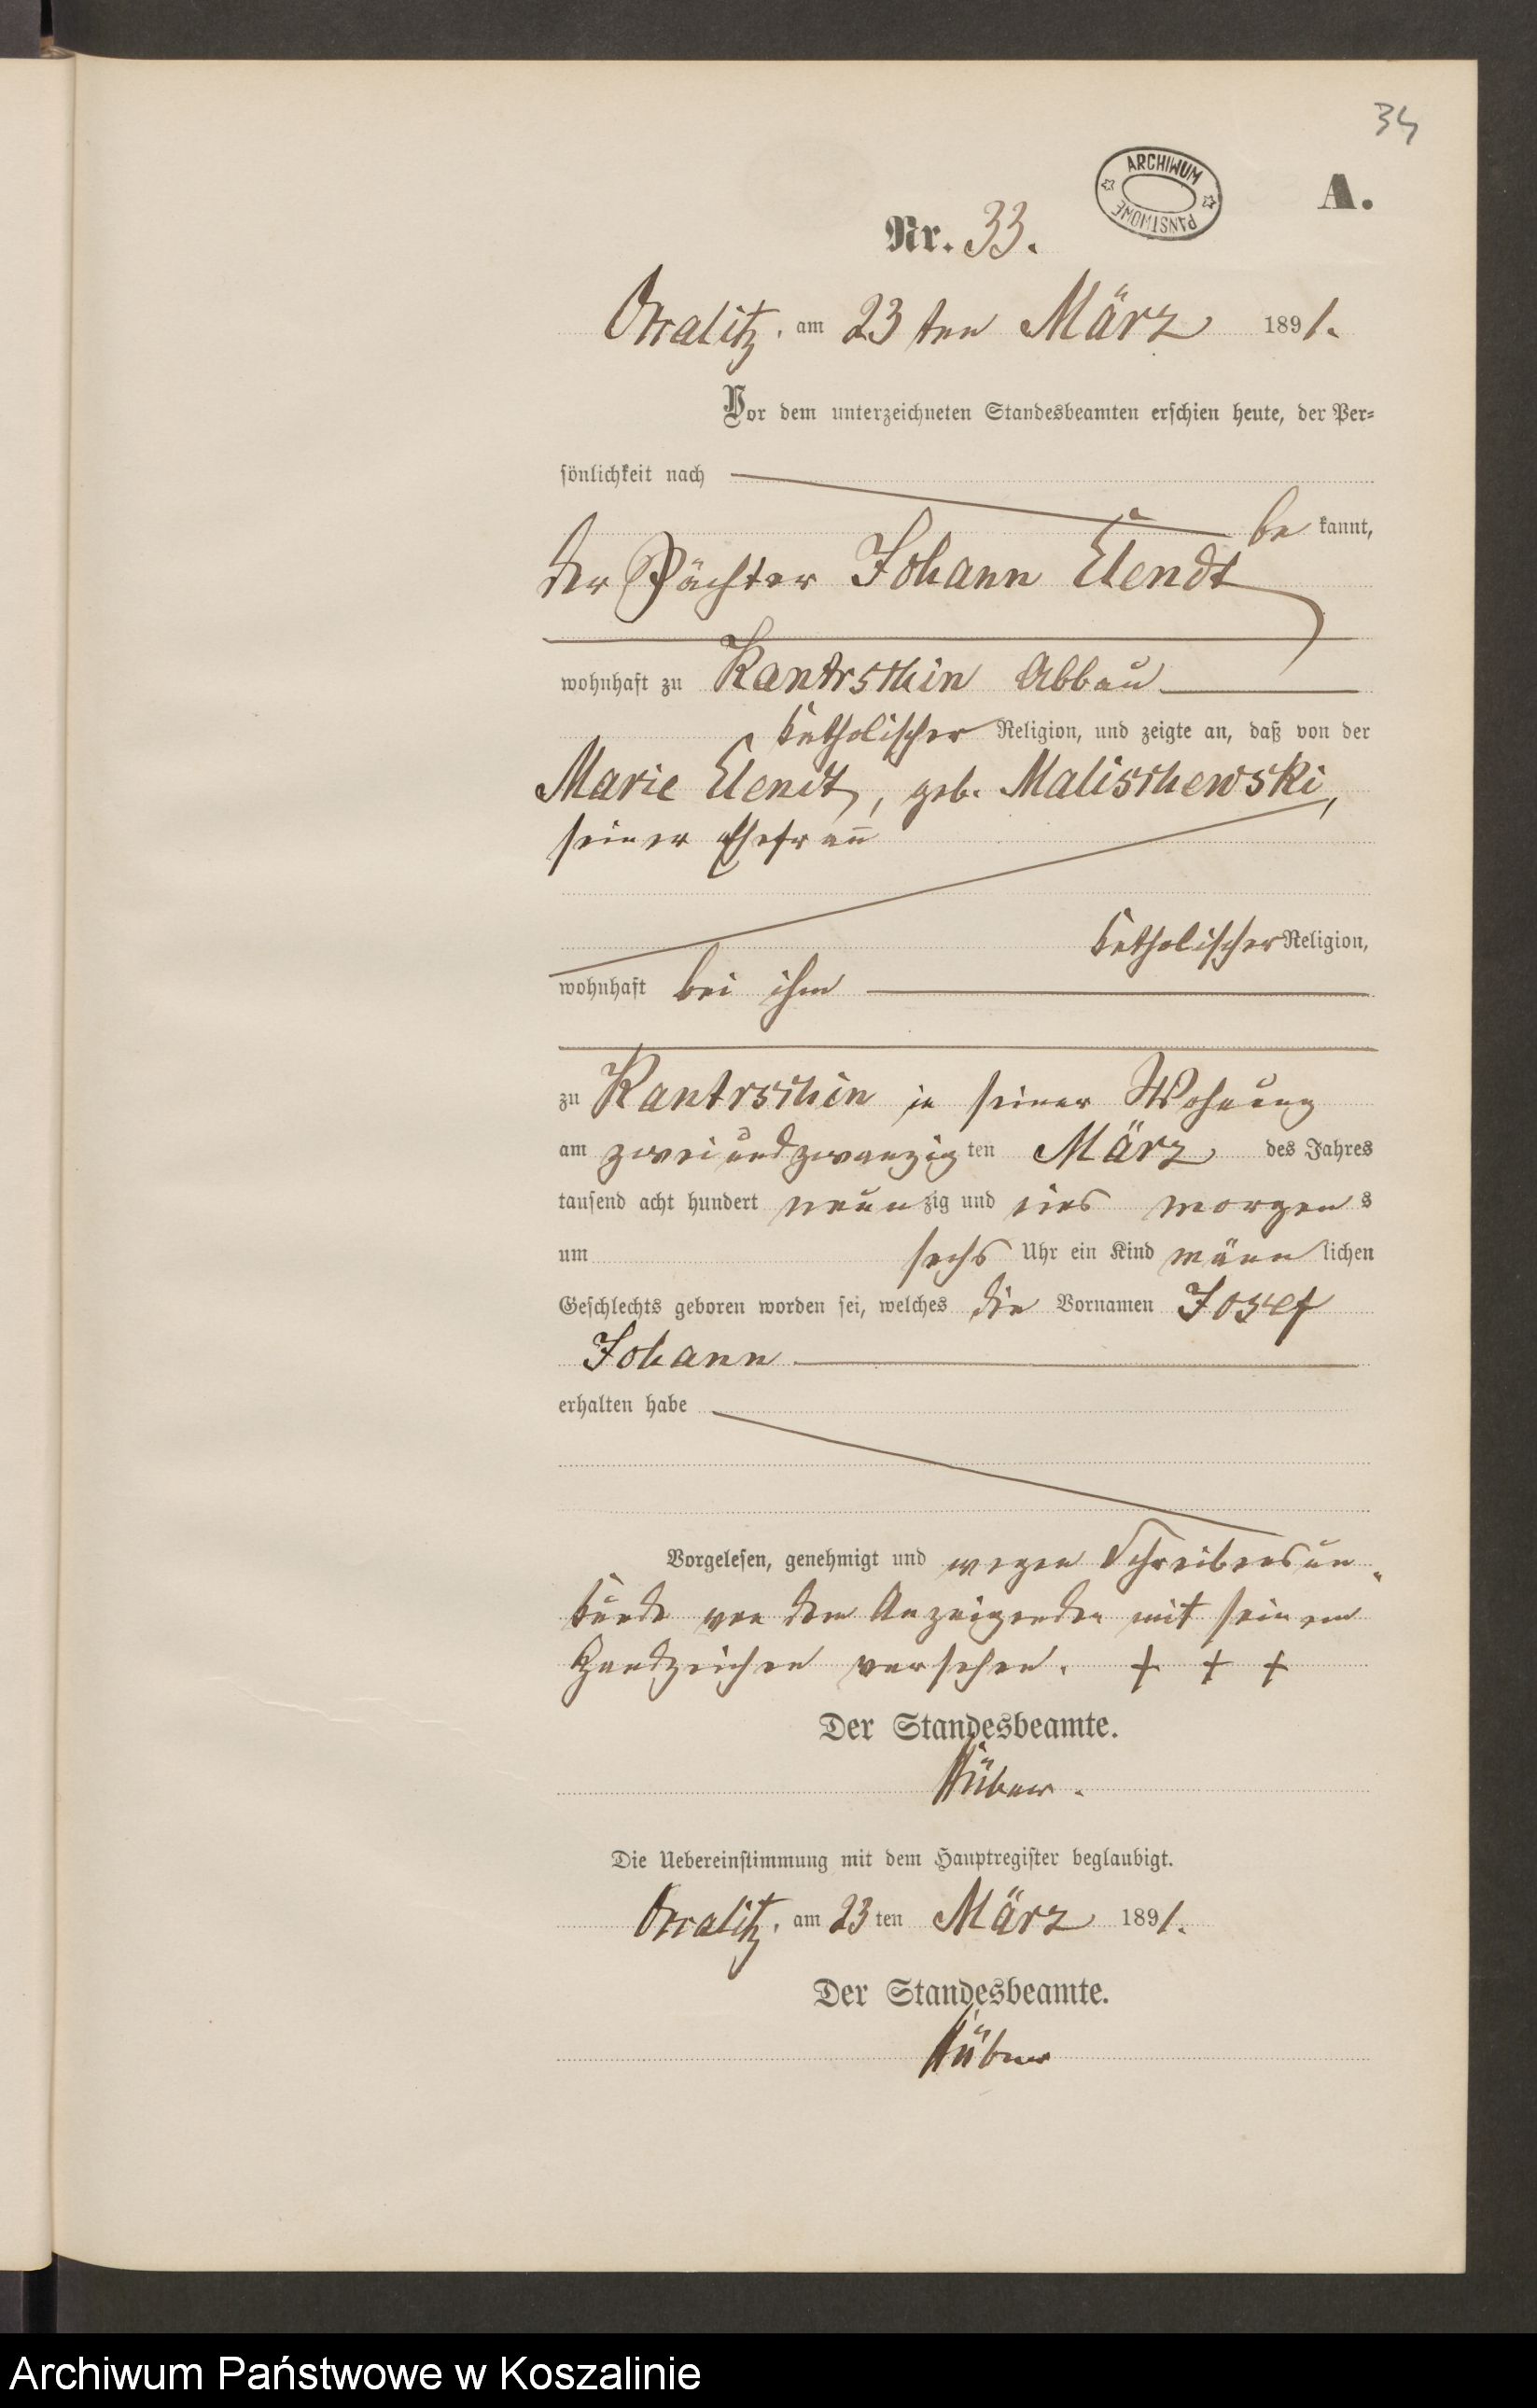 34
ARCHIWUM PAŃSTWOWE
A.
Nr. 33.
Occalitz, am 23 ten März 1891.
Vor dem unterzeichneten Standesbeamten erschien heute, der Per-
sönlichkeit nach
be kannt,
der Pächter Johann Elendt
wohnhaft zu Kantrschin Abbau
katholischer Religion, und zeigte an, daß von der
Marie Elendt, geb. Malischewski,
seiner Ehefrau
katholischer Religion,
wohnhaft bei ihm
zu Kantrschin in seiner Wohnung
am zweiundzwanzig ten März des Jahres
tausend acht hundert neun zig und eins morgen s
um sechs Uhr ein Kind männ lichen
Geschlechts geboren worden sei, welches die Vornamen Josef
Johann
erhalten habe
Vorgelesen, genehmigt und wegen Schreibensun-
kunde von dem Anzeigenden mit seinem
Handzeichen versehen. + + +
Der Standesbeamte.
Die Uebereinstimmung mit dem Hauptregister beglaubigt.
Occalitz, am 23 ten März 1891.
Der Standesbeamte.
Archiwum Państwowe w Koszalinie